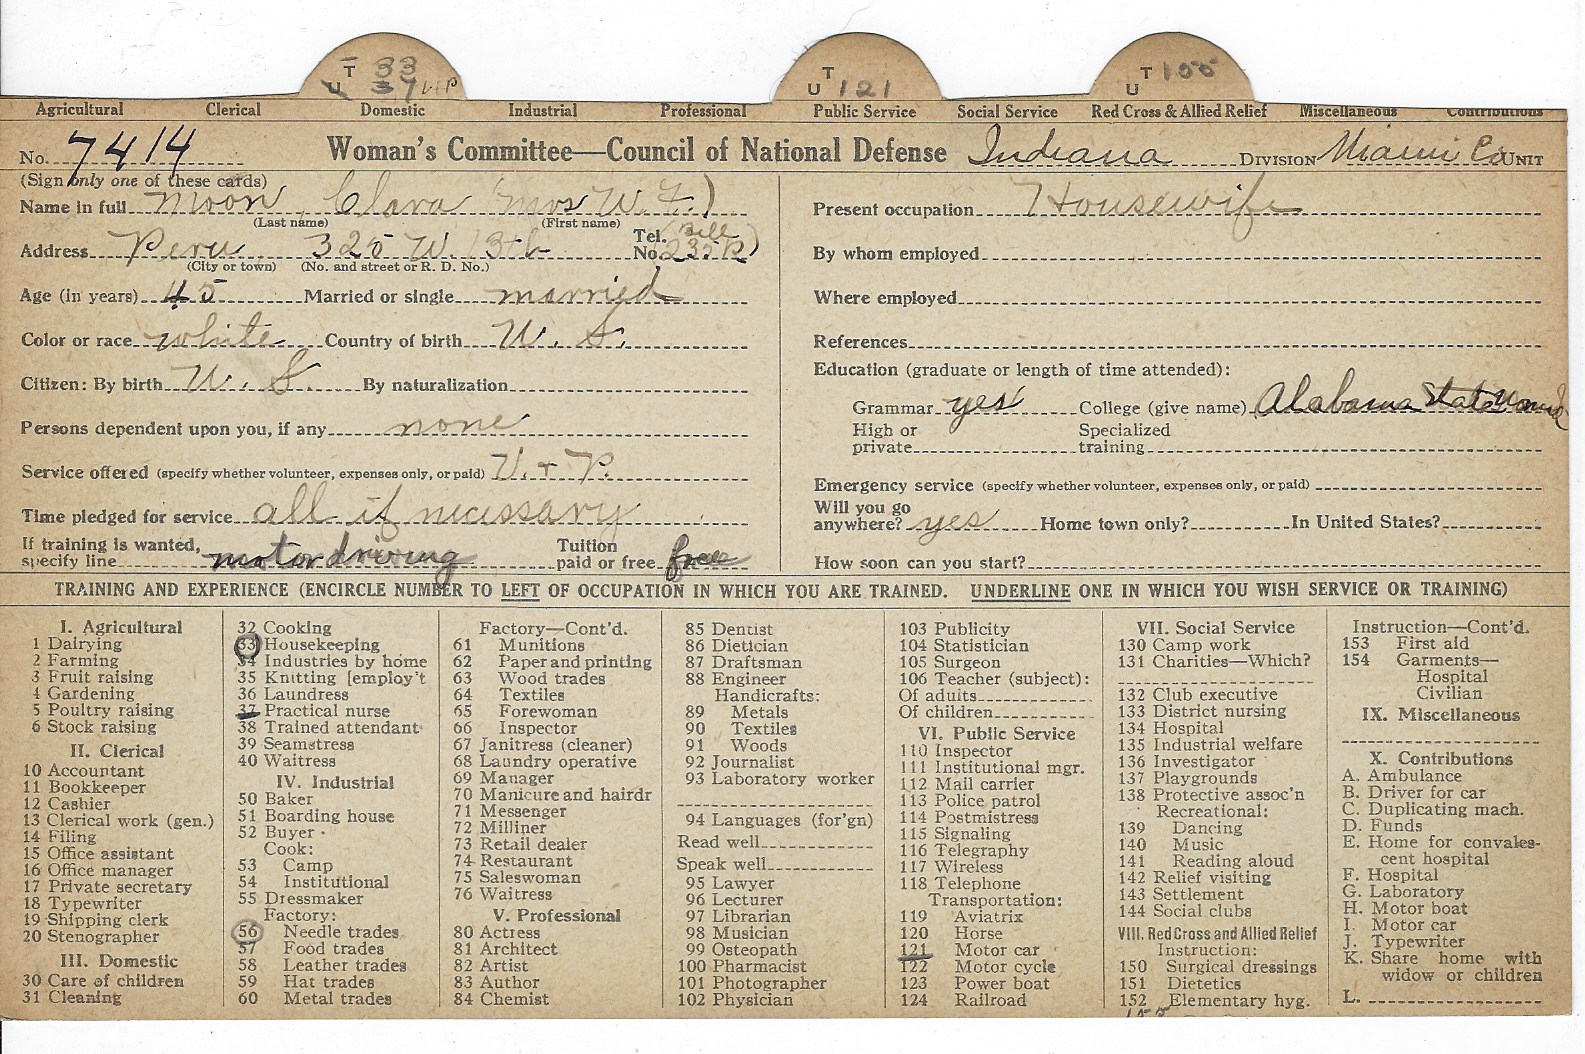 T 33
U 37 HP
T
U 121
T 155
U
Agricultural Clerical Domestic Industrial Professional Public Service Social Service Red Cross & Allied Relief Miscellaneous Contributions
No. 7414 Woman's Committee—Council of National Defense Indiana DIVISION Miami Co UNIT
(Sign only one of these cards)
Name in full Moon, Clara (Mrs W. F.)
(Last name) (First name)
Address Peru 325 W. 13th Tel. No. (Bell 235 R)
(City or town) (No. and street or R. D. No.)
Age (in years) 45 Married or single married
Color or race white Country of birth U. S.
Citizen: By birth U. S. By naturalization
Persons dependent upon you, if any none
Service offered (specify whether volunteer, expenses only, or paid) V. + P.
Time pledged for service all if necessary
If training is wanted, specify line motor driving Tuition paid or free free
Present occupation Housewife
By whom employed
Where employed
References
Education (graduate or length of time attended):
Grammar yes College (give name) Alabama State
High or private Specialized training
Emergency service (specify whether volunteer, expenses only, or paid)
Will you go anywhere? yes Home town only? In United States?
How soon can you start?
TRAINING AND EXPERIENCE (ENCIRCLE NUMBER TO LEFT OF OCCUPATION IN WHICH YOU ARE TRAINED. UNDERLINE ONE IN WHICH YOU WISH SERVICE OR TRAINING)
I. Agricultural
1 Dairying
2 Farming
3 Fruit raising
4 Gardening
5 Poultry raising
6 Stock raising
II. Clerical
10 Accountant
11 Bookkeeper
12 Cashier
13 Clerical work (gen.)
14 Filing
15 Office assistant
16 Office manager
17 Private secretary
18 Typewriter
19 Shipping clerk
20 Stenographer
III. Domestic
30 Care of children
31 Cleaning
32 Cooking
33 Housekeeping
34 Industries by home
35 Knitting [employ't
36 Laundress
37 Practical nurse
38 Trained attendant
39 Seamstress
40 Waitress
IV. Industrial
50 Baker
51 Boarding house
52 Buyer
Cook:
53 Camp
54 Institutional
55 Dressmaker
Factory:
56 Needle trades
57 Food trades
58 Leather trades
59 Hat trades
60 Metal trades
Factory—Cont'd.
61 Munitions
62 Paper and printing
63 Wood trades
64 Textiles
65 Forewoman
66 Inspector
67 Janitress (cleaner)
68 Laundry operative
69 Manager
70 Manicure and hairdr
71 Messenger
72 Milliner
73 Retail dealer
74 Restaurant
75 Saleswoman
76 Waitress
V. Professional
80 Actress
81 Architect
82 Artist
83 Author
84 Chemist
85 Dentist
86 Dietician
87 Draftsman
88 Engineer
Handicrafts:
89 Metals
90 Textiles
91 Woods
92 Journalist
93 Laboratory worker
94 Languages (for'gn)
Read well
Speak well
95 Lawyer
96 Lecturer
97 Librarian
98 Musician
99 Osteopath
100 Pharmacist
101 Photographer
102 Physician
103 Publicity
104 Statistician
105 Surgeon
106 Teacher (subject):
Of adults
Of children
VI. Public Service
110 Inspector
111 Institutional mgr.
112 Mail carrier
113 Police patrol
114 Postmistress
115 Signaling
116 Telegraphy
117 Wireless
118 Telephone
Transportation:
119 Aviatrix
120 Horse
121 Motor car
122 Motor cycle
123 Power boat
124 Railroad
VII. Social Service
130 Camp work
131 Charities—Which?
132 Club executive
133 District nursing
134 Hospital
135 Industrial welfare
136 Investigator
137 Playgrounds
138 Protective assoc'n
Recreational:
139 Dancing
140 Music
141 Reading aloud
142 Relief visiting
143 Settlement
144 Social clubs
VIII. Red Cross and Allied Relief
Instruction:
150 Surgical dressings
151 Dietetics
152 Elementary hyg.
155
Instruction—Cont'd.
153 First aid
154 Garments—
Hospital
Civilian
IX. Miscellaneous
X. Contributions
A. Ambulance
B. Driver for car
C. Duplicating mach.
D. Funds
E. Home for convales-
cent hospital
F. Hospital
G. Laboratory
H. Motor boat
I. Motor car
J. Typewriter
K. Share home with
widow or children
L.